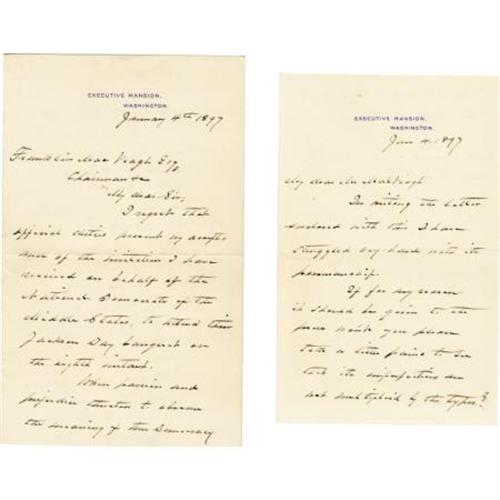 EXECUTIVE MANSION,
WASHINGTON.
January 4th 1897
Franklin Mac Veagh Esq
Chairman &c
My dear Sir;
I regret that
official duties prevent my accept-
ance of the invitation I have
received on behalf of the
National Democrats of the
Middle States, to attend their
Jackson Day banquet on
the eighth instant.
When passion and
prejudice threaten to obscure
the meaning of true Democracy
EXECUTIVE MANSION,
WASHINGTON.
Jan 4. 1897
My dear Mr MacVeagh
In writing the letter
enclosed with this I have
struggled very hard with its
penmanship.
If for any reason
it should be given to the
press wont you please
take a little pains to see
that its imperfections are
not multiplied by the types?